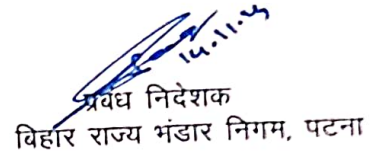 14.11.25
प्रबंध निदेशक
बिहार राज्य भंडार निगम, पटना